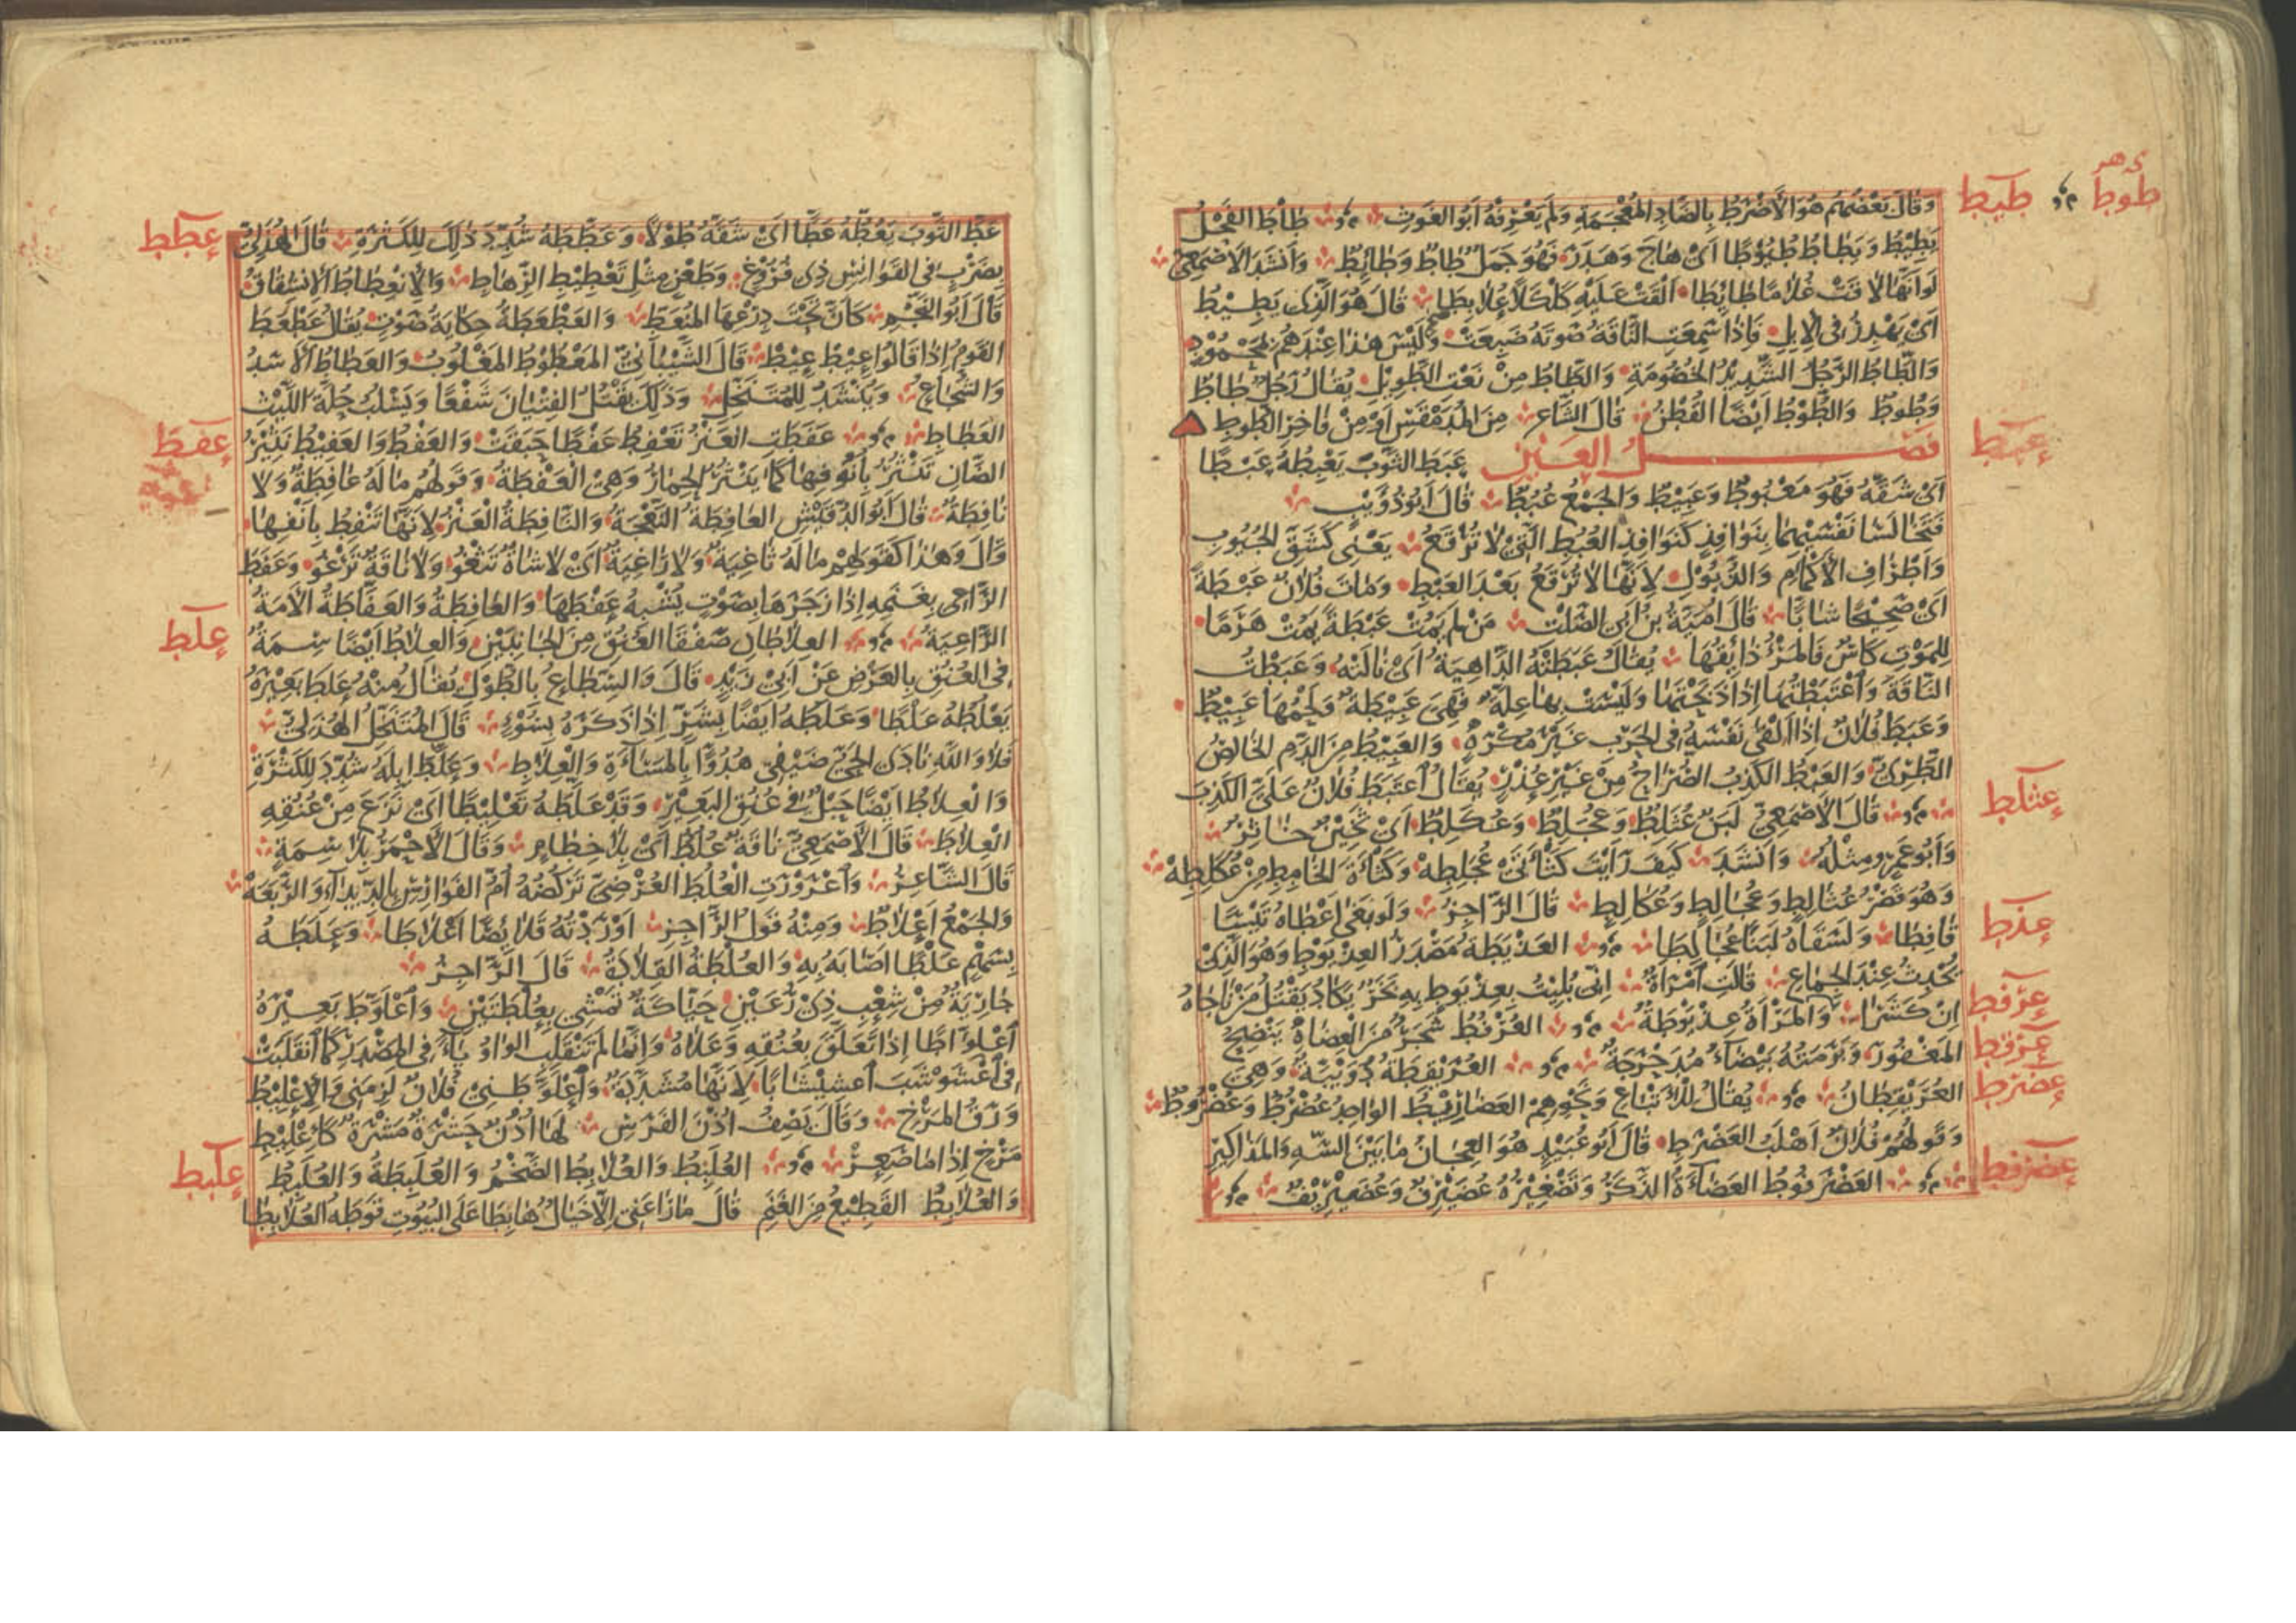 طوط طيط
وَقَالَ بَعْضُهُم هُوَ الْاَضْرَطُ بِالضَّادِ المُعْجَمَةِ وَلَمْ يَعْرِفْهُ اَبُو الغَوْثِ طَاطَ الفَحْلُ
يَطِيْطُ وَيَطَاطُ طُيُوْطًا اَىْ هَاجَ وَهَدَرَ فَهُوَ جَمَلٌ طَاطٌ وَطَائِطٌ وَاَنْشَدَ الاَصْمَعِىُّ
لَوْ اَنَّهَا لاَقَتْ غُلاَمًا طَائِطَا اَلْقَتْ عَلَيْهِ كَلْكَلاً عُلاَبِطَا قَالَ هُوَ الَّذِى يَطِيْطُ
اَىْ يَهْدِرُ فِى الاِبِلِ فَاِذَا سَمِعَتِ النَّاقَةُ صَوْتَهُ ضَبِعَتْ وَلَيْسَ هٰذَا عِنْدَهُمْ بِمَحْمُوْدٍ
وَالطَّاطُ الرَّجُلُ الشَّدِيْدُ الخُصُومَةِ وَالطَّاطُ مِنْ نَعْتِ الطَّوِيْلِ يُقَالُ رَجُلٌ طَاطٌ
وَطُوطٌ وَالطُّوْطُ اَيْضًا القُطْنُ قَالَ الشَّاعِرُ مِنَ المُدَمْقَسِ اَوْ مِنْ فَاخِرِ الطُّوطِ
عبط فَصْلُ العَيْنِ عَبَطَ الثَّوْبَ يَعْبِطُهُ عَبْطًا
اَىْ شَقَّهُ فَهُوَ مَعْبُوطٌ وَعَبِيْطٌ وَالجَمْعُ عُبُطٌ قَالَ اَبُو ذُؤَيْبٍ
فَتَخَالَسَا نَفْسَيْهِمَا بِنَوَافِذٍ كَنَوَافِذِ العُبُطِ الَّتِىْ لاَ تُرْقَعُ يَعْنِى كَشَقِّ الجُيُوبِ
وَاَطْرَافِ الاَكْمَامِ وَالذُّيُوْلِ لِاَنَّهَا لاَ تُرْقَعُ بَعْدَ العَبْطِ وَمَاتَ فُلاَنٌ عَبْطَةً
اَىْ صَحِيْحًا شَابًّا قَالَ اُمَيَّةُ بْنُ اَبِى الصَّلْتِ مَنْ لَمْ يَمُتْ عَبْطَةً يَمُتْ هَرَمًا
لِلمَوْتِ كَاْسٌ فَالمَرْءُ ذَائِقُهَا يُقَالُ عَبَطَتْهُ الدَّاهِيَةُ اَىْ نَالَتْهُ وَعَبَطْتُ
النَّاقَةَ وَاعْتَبَطْتُهَا اِذَا ذَبَحْتَهَا وَلَيْسَتْ بِهَا عِلَّةٌ فَهِىَ عَبِيْطَةٌ وَلَحْمُهَا عَبِيْطٌ
وَعَبَطَ فُلاَنٌ اِذَا اَلْقٰى نَفْسَهُ فِى الحَرْبِ غَيْرَ مُكْرَهٍ وَالعَبِيْطُ مِنَ الدَّمِ الخَالِصُ
الطَّرِىُّ وَالعَبْطُ الكَذِبُ الصُّرَاحُ مِنْ غَيْرِ عُذْرٍ يُقَالُ اعْتَبَطَ فُلاَنٌ عَلَىَّ الكَذِبَ
عثلط قَالَ الاَصْمَعِىُّ لَبَنٌ عُثَلِطٌ وَعُجَلِطٌ وَعُكَلِطٌ اَىْ ثَخِيْنٌ خَاثِرٌ
وَاَبُو عَمْرٍو مِثْلَهُ وَاَنْشَدَ كَيْفَ رَاَيْتَ كُثْاَتَىْ عُجَلِطِهْ وَكُثْاَةَ الخَامِطِ مِنْ عُكَلِطِهْ
وَهُوَ قَصْرُ عُثَالِطٍ وَعُجَالِطٍ وَعُكَالِطٍ قَالَ الرَّاجِزُ وَلَوْ بَغٰى اَعْطَاهُ تَيْسًا
عذط قَافِطَا وَلَسَقَاهُ لَبَنًا عُجَالِطَا العَذْيَطَةُ مَصْدَرُ العِذْيَوْطِ وَهُوَ الَّذِىْ
يُحْدِثُ عِنْدَ الجِمَاعِ قَالَتِ امْرَاَةٌ اِنِّى بُلِيْتُ بِعِذْيَوْطٍ بِهِ بَخَرٌ يَكَادُ يَقْتُلُ مَنْ نَاجَاهُ
عرفط اِنْ كَشَرَا وَالمَرْاَةُ عِذْيَوْطَةٌ العُرْفُطُ شَجَرٌ مِنَ العِضَاهِ يَنْضَحُ
عرقط المَغْفُورَ وَبَرَمَتُهُ بَيْضَاءُ مُدَحْرَجَةٌ العُرَيْقِطَةُ دُوَيْبَّةٌ وَهِىَ
عضرط العُرَيْقِطَانُ يُقَالُ لِلْاَتْبَاعِ وَنَحْوِهِمْ العَضَارِيْطُ الوَاحِدُ عُضْرُطٌ وَعُضْرُوطٌ
وَقَوْلُهُمْ فُلاَنٌ اَهْلَبُ العَضْرَطِ قَالَ اَبُو عُبَيْدٍ هُوَ العِجَانُ مَا بَيْنَ السُّهِ وَالمَذَاكِيْرِ
عضرفط العَضْرَفُوطُ العَضَاءَةُ الذَّكَرُ وَتَصْغِيْرُهُ عُضَيْرِفٌ وَعُضَيْرِيْفٌ
عطط عَطَّ الثَّوْبَ يَعُطُّهُ عَطًّا اَىْ شَقَّهُ طُوْلاً وَعَطَّطَهُ شُدِّدَ ذٰلِكَ لِلكَثْرَةِ قَالَ الهُذَلِىُّ
بِضَرْبٍ فِى القَوَانِسِ ذِى فُرُوْغٍ وَطَعْنٍ مِثْلِ تَعْطِيْطِ الرِّهَاطِ وَالاِنْعِطَاطُ الاِنْشِقَاقُ
قَالَ اَبُو النَّجْمِ كَاَنَّ تَحْتَ دِرْعِهَا المُنْعَطِّ وَالعَطْعَطَةُ حِكَايَةُ صَوْتٍ يُقَالُ عَطْعَطَ
القَوْمُ اِذَا قَالُوا عِيْطَ عِيْطَ قَالَ الشَّيْبَانِىُّ المَعْطُوْطُ المَغْلُوبُ وَالعَطَاطُ الاَسَدُ
وَالشُّجَاعُ وَيُنْشَدُ لِلمُتَنَخِّلِ وَذٰلِكَ يَقْتُلُ الفِتْيَانَ شَفْعًا وَيَسْلُبُ حُلَّةَ اللَّيْثِ
عفط العَطَاطِ عَفَطَتِ العَنْزُ تَعْفِطُ عَفْطًا حَبَقَتْ وَالعَفْطُ وَالعَفِيْطُ نَثِيْرُ
الضَّاْنِ تَنْثُرُ بِاُنُوفِهَا كَمَا يَنْثُرُ الحِمَارُ وَهِىَ العَفْطَةُ وَقَوْلُهُمْ مَا لَهُ عَافِطَةٌ وَلاَ
نَافِطَةٌ قَالَ اَبُو الدُّقَيْشِ العَافِطَةُ النَّعْجَةُ وَالنَّافِطَةُ العَنْزُ لِاَنَّهَا تَنْفِطُ بِاَنْفِهَا
قَالَ وَهٰذَا كَقَوْلِهِمْ مَا لَهُ ثَاغِيَةٌ وَلاَ رَاغِيَةٌ اَىْ لاَ شَاةٌ تَثْغُو وَلاَ نَاقَةٌ تَرْغُو وَعَفَطَ
الرَّاعِى بِغَنَمِهِ اِذَا زَجَرَهَا بِصَوْتٍ يُشْبِهُ عَفْطَهَا وَالعَافِطَةُ وَالعَفَّاطَةُ الاَمَةُ
علط الرَّاعِيَةُ العِلاَطَانِ صَفْقَا العُنُقِ مِنَ الجَانِبَيْنِ وَالعِلاَطُ اَيْضًا سِمَةٌ
فِى العُنُقِ بِالعَرْضِ عَنْ اَبِىْ زَيْدٍ قَالَ وَالسِّطَاعُ بِالطُّوْلِ يُقَالُ مِنْهُ عَلَطَ بَعِيْرَهُ
يَعْلُطُهُ عَلْطًا وَعَلَطَهُ اَيْضًا بِشَرٍّ اِذَا ذَكَرَهُ بِسُوْءٍ قَالَ المُتَنَخِّلُ الهُذَلِىُّ
فَلاَ وَاللّٰهِ نَادَى الحَىُّ ضَيْفِى هُدُوًّا بِالمَسَاءَةِ وَالعِلاَطِ وَعَلَّطَ اِبِلَهُ شُدِّدَ لِلكَثْرَةِ
وَالعِلاَطُ اَيْضًا حَبْلٌ فِى عُنُقِ البَعِيْرِ وَقَدْ عَلَّطَهُ تَعْلِيْطًا اَىْ نَزَعَ مِنْ عُنُقِهِ
العِلاَطَ قَالَ الاَصْمَعِىُّ نَاقَةٌ عُلُطٌ اَىْ بِلاَ خِطَامٍ وَقَالَ الاَحْمَرُ بِلاَ سِمَةٍ
قَالَ الشَّاعِرُ وَاعْرَوْرَتِ العُلُطَ العُرْضِىَّ تَرْكُضُهُ اُمُّ الفَوَارِسِ بِالدِّيْدَاءِ وَالرَّبَعَهْ
وَالجَمْعُ اَعْلاَطٌ وَمِنْهُ قَوْلُ الرَّاجِزِ اَوْرَدْتُهُ قَلاَئِصًا اَعْلاَطَا وَعَلَطَهُ
بِسَهْمٍ عَلْطًا اَصَابَهُ بِهِ وَالعُلْطَةُ القِلاَدَةُ قَالَ الرَّاجِزُ
جَارِيَةٌ مِنْ شِعْبِ ذِىْ رُعَيْنِ حَيَّاكَةٌ تَمْشِى بِعُلْطَتَيْنِ وَاعْلَوَّطَ بَعِيْرَهُ
اعْلِوَّاطًا اِذَا تَعَلَّقَ بِعُنُقِهِ وَعَلاَهُ وَاِنَّمَا لَمْ تَنْقَلِبِ الوَاوُ يَاءً فِى المَصْدَرِ كَمَا انْقَلَبَتْ
فِى اعْشَوْشَبَ اعْشِيْشَابًا لِاَنَّهَا مُشَدَّدَةٌ وَاعْلَوَّطَنِىْ فُلاَنٌ لَزِمَنِى وَالاِعْلِيْطُ
وَرَقُ المَرْخِ وَقَالَ يَصِفُ اُذُنَ الفَرَسِ لَهَا اُذُنٌ حَشْرَةٌ مَشْرَةٌ كَاِعْلِيْطِ
علبط مَرْخٍ اِذَا مَا صَفِرْ العُلَبِطُ وَالعُلاَبِطُ الضَّخْمُ وَالعُلَبِطَةُ وَالعُلَبِطُ
وَالعُلاَبِطُ القَطِيْعُ مِنَ الغَنَمِ قَالَ مَا رَاعَنِى اِلاَّ خَيَالٌ هَابِطَا عَلَى البُيُوتِ قَوْطَهُ العُلاَبِطَا